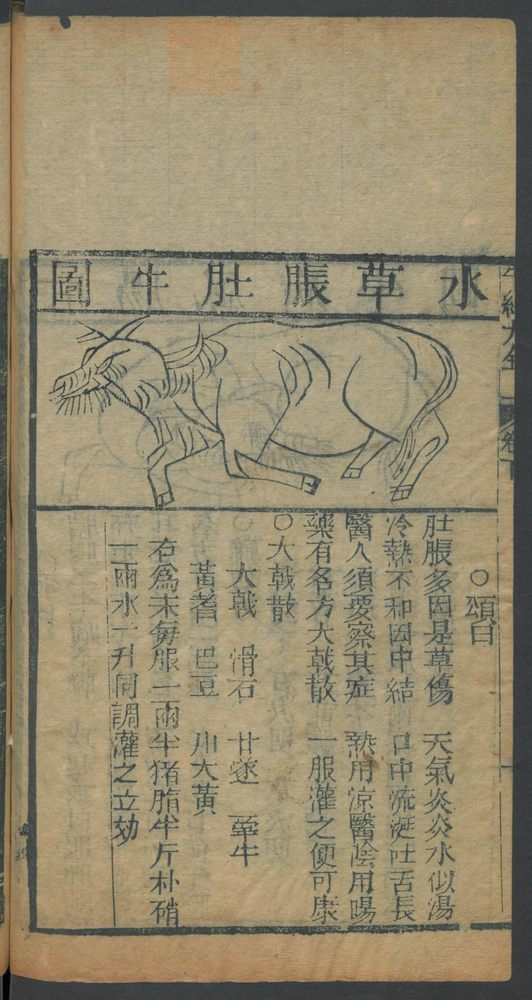 水草脹肚牛圖
○頌曰
肚脹多因是草傷　天氣炎炎水似湯
冷熱不和因中結　口中流涎吐舌長
醫人須要察其症　熱用涼醫陰用暘
藥有名方大戟散　一服灌之便可康
○大戟散
大戟　滑石　甘遂　牽牛
黃耆　巴豆　川大黃
右為末每服一兩半猪脂半斤朴硝
一兩水一升同調灌之立効